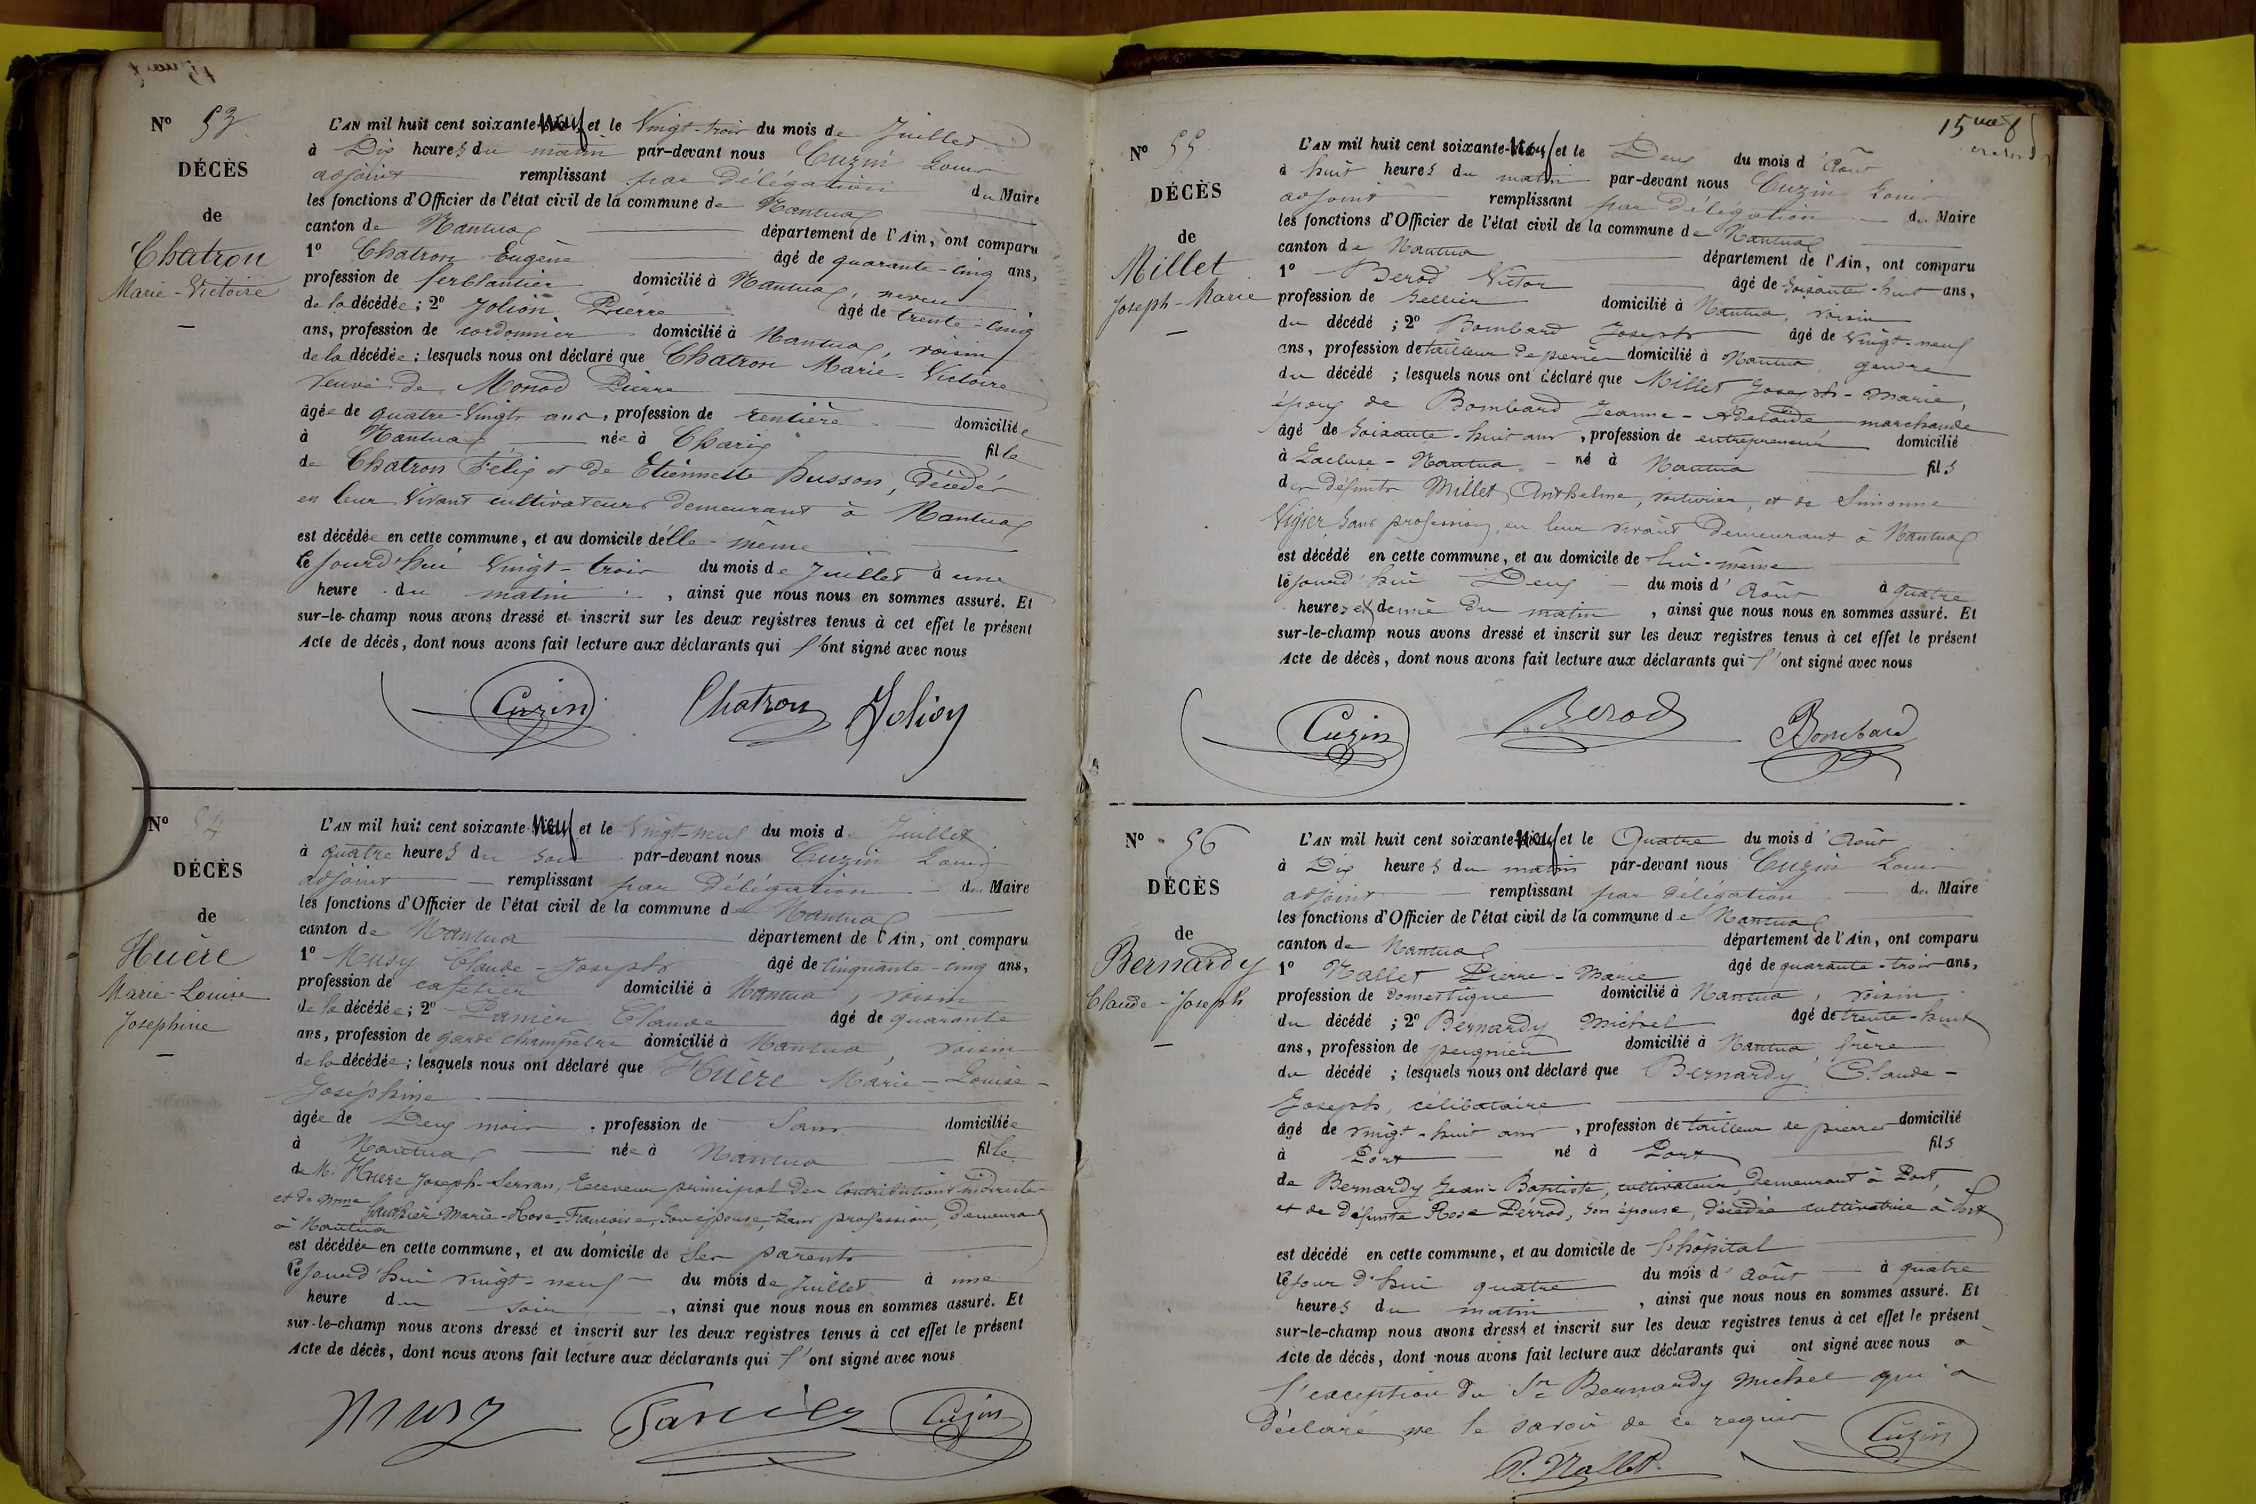 Nº 53
DÉCÈS
de
Chatron
Marie-Victoire
L'AN mil huit cent soixante-Neuf et le Vingt-trois du mois de Juillet
à Dix heures du matin par-devant nous Cuzin Louis
adjoint remplissant par délégation du Maire
les fonctions d'Officier de l'état civil de la commune de Nantua
canton de Nantua département de l'Ain, ont comparu
1º Chatron Eugène âgé de quarante-cinq ans,
profession de ferblantier domicilié à Nantua, neveu
de la décédée; 2º Jolion Pierre âgé de trente-cinq
ans, profession de cordonnier domicilié à Nantua, voisin
de la décédée; lesquels nous ont déclaré que Chatron Marie-Victoire
veuve de Monod Pierre
âgée de quatre-Vingts ans, profession de rentière domiciliée
à Nantua née à Charix fille
de Chatron Félix et de Etiennette husson, décédés
en leur Vivant cultivateurs demeurant à Nantua
est décédée en cette commune, et au domicile d'elle-même
cejourd'hui Vingt-trois du mois de Juillet à une
heure du matin, ainsi que nous nous en sommes assuré. Et
sur-le-champ nous avons dressé et inscrit sur les deux registres tenus à cet effet le présent
Acte de décès, dont nous avons fait lecture aux déclarants qui l'ont signé avec nous
Cuzin Chatron Jolion
Nº 54
DÉCÈS
de
Huère
Marie-Louise
Josephine
L'AN mil huit cent soixante-Neuf et le Vingt-neuf du mois de Juillet
à quatre heures du soir par-devant nous Cuzin Louis
adjoint remplissant par délégation du Maire
les fonctions d'Officier de l'état civil de la commune de Nantua
canton de Nantua département de l'Ain, ont comparu
1º Musy Claude-Joseph âgé de cinquante-cinq ans,
profession de cafetier domicilié à Nantua, voisin
de la décédée; 2º Panier Claude âgé de quarante
ans, profession de garde champêtre domicilié à Nantua, voisin
de la décédée; lesquels nous ont déclaré que Huère Marie-Louise-
Joséphine
âgée de Deux mois, profession de Sans domiciliée
à Nantua née à Nantua fille
de M. Huère Joseph-Servan, Receveur principal des Contributions indirectes
et de Mme Marie-Rose-Françoise, son épouse, sans profession, demeurant
à Nantua
est décédée en cette commune, et au domicile de ses parents
cejourd'hui vingt-neuf du mois de Juillet à une
heure du soir, ainsi que nous nous en sommes assuré. Et
sur-le-champ nous avons dressé et inscrit sur les deux registres tenus à cet effet le présent
Acte de décès, dont nous avons fait lecture aux déclarants qui l'ont signé avec nous
Musy Panier Cuzin
Nº 55
DÉCÈS
de
Millet
Joseph-Marie
L'AN mil huit cent soixante-Neuf et le Deux du mois d'Août
à huit heures du matin par-devant nous Cuzin Louis
adjoint remplissant par délégation du Maire
les fonctions d'Officier de l'état civil de la commune de Nantua
canton de Nantua département de l'Ain, ont comparu
1º Berod Victor âgé de Soixante-huit ans,
profession de Sellier domicilié à Nantua, voisin
du décédé; 2º Bombard Joseph âgé de Vingt-neuf
ans, profession de tailleur de pierre domicilié à Nantua, gendre
du décédé; lesquels nous ont déclaré que Millet Joseph-Marie,
époux de Bombard Jeanne-Adelaïde, marchande
âgé de Soixante-huit ans, profession de entrepreneur domicilié
à Lacluse-Nantua né à Nantua fils
des défunts Millet Anthelme, voiturier, et de Simonne
Vigier sans profession, en leur vivant demeurant à Nantua
est décédé en cette commune, et au domicile de lui-même
cejourd'hui Deux du mois d'Août à quatre
heures et demie du matin, ainsi que nous nous en sommes assuré. Et
sur-le-champ nous avons dressé et inscrit sur les deux registres tenus à cet effet le présent
Acte de décès, dont nous avons fait lecture aux déclarants qui l'ont signé avec nous
Cuzin Berod Bombard
Nº 56
DÉCÈS
de
Bernardy
Claude-Joseph
L'AN mil huit cent soixante-Neuf et le Quatre du mois d'Août
à Dix heures du matin par-devant nous Cuzin Louis
adjoint remplissant par délégation du Maire
les fonctions d'Officier de l'état civil de la commune de Nantua
canton de Nantua département de l'Ain, ont comparu
1º Nallet Pierre-Marie âgé de quarante-trois ans,
profession de domestique domicilié à Nantua, voisin
du décédé; 2º Bernardy Michel âgé de trente-huit
ans, profession de peignier domicilié à Nantua, frère
du décédé; lesquels nous ont déclaré que Bernardy Claude-
Joseph, célibataire
âgé de vingt-huit ans, profession de tailleur de pierres domicilié
à Port né à Port fils
de Bernardy Jean-Baptiste, cultivateur, demeurant à Port,
et de défunte Rose Perrod, son épouse, décédée cultivatrice à Port
est décédé en cette commune, et au domicile de l'hôpital
cejour d'hui quatre du mois d'Août à quatre
heures du matin, ainsi que nous nous en sommes assuré. Et
sur-le-champ nous avons dressé et inscrit sur les deux registres tenus à cet effet le présent
Acte de décès, dont nous avons fait lecture aux déclarants qui ont signé avec nous à
l'exception du Sr Bernardy Michel qui a
déclaré ne le savoir de ce requis
Cuzin
P. Nallet